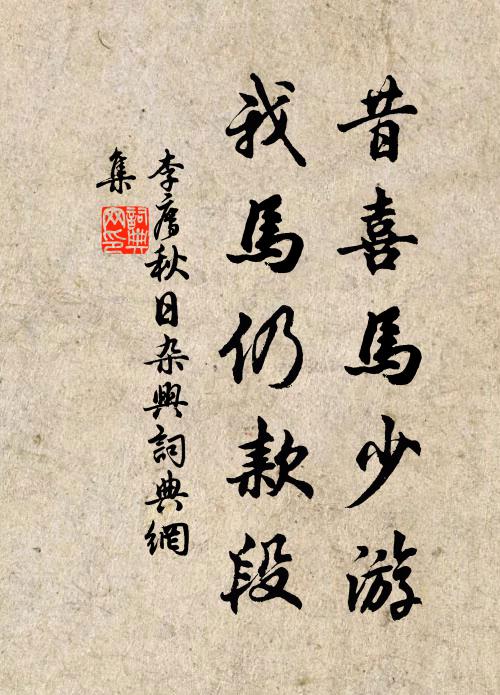 昔喜馬少游
我馬仍款段
李廌秋日杂興詞典網
集
詞典
网印